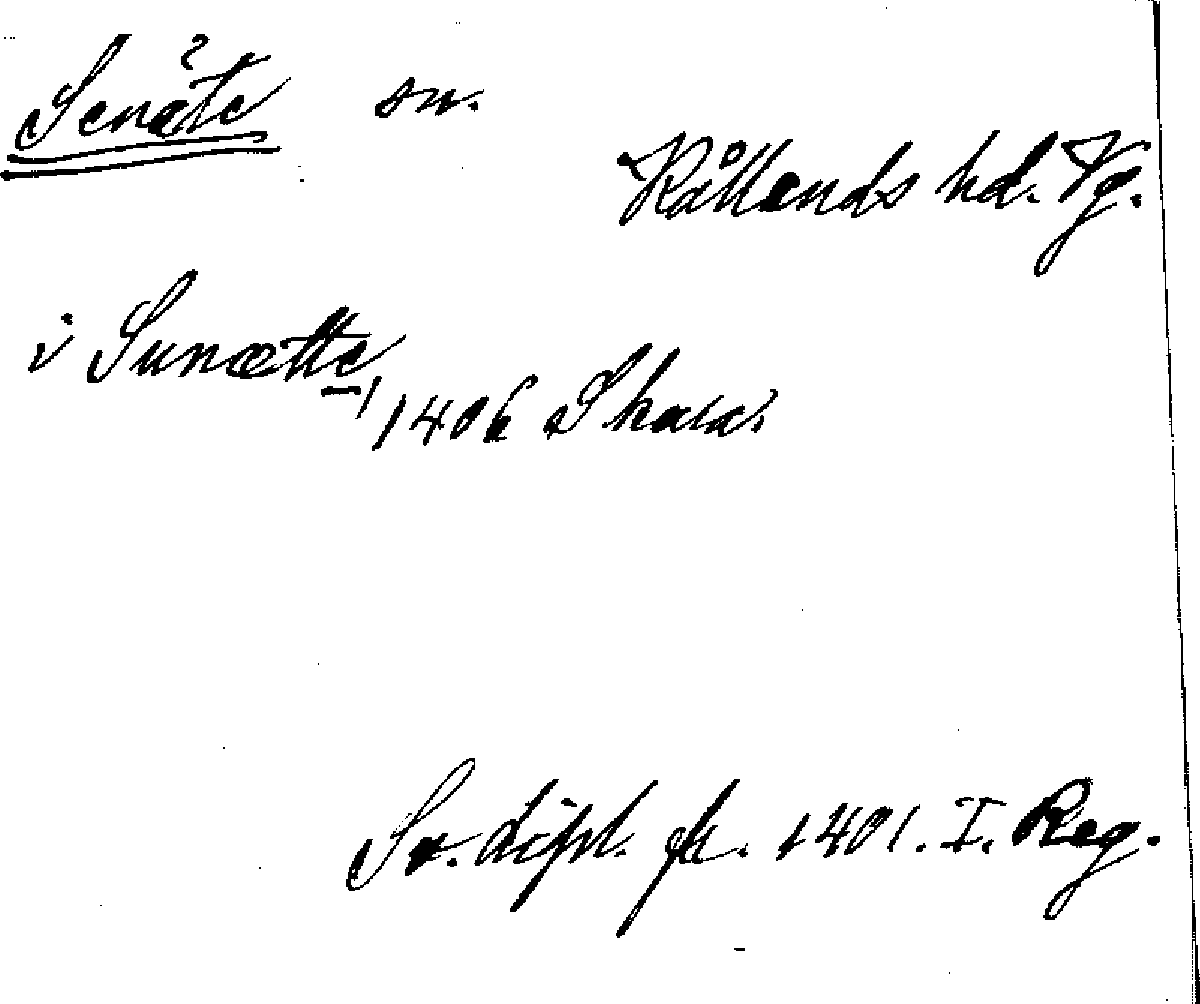 Senäte sn.
Kållands hd. Vg.
i Sunætte
1406 Skara
Sv. dipl. fr. 1401. I. Reg.